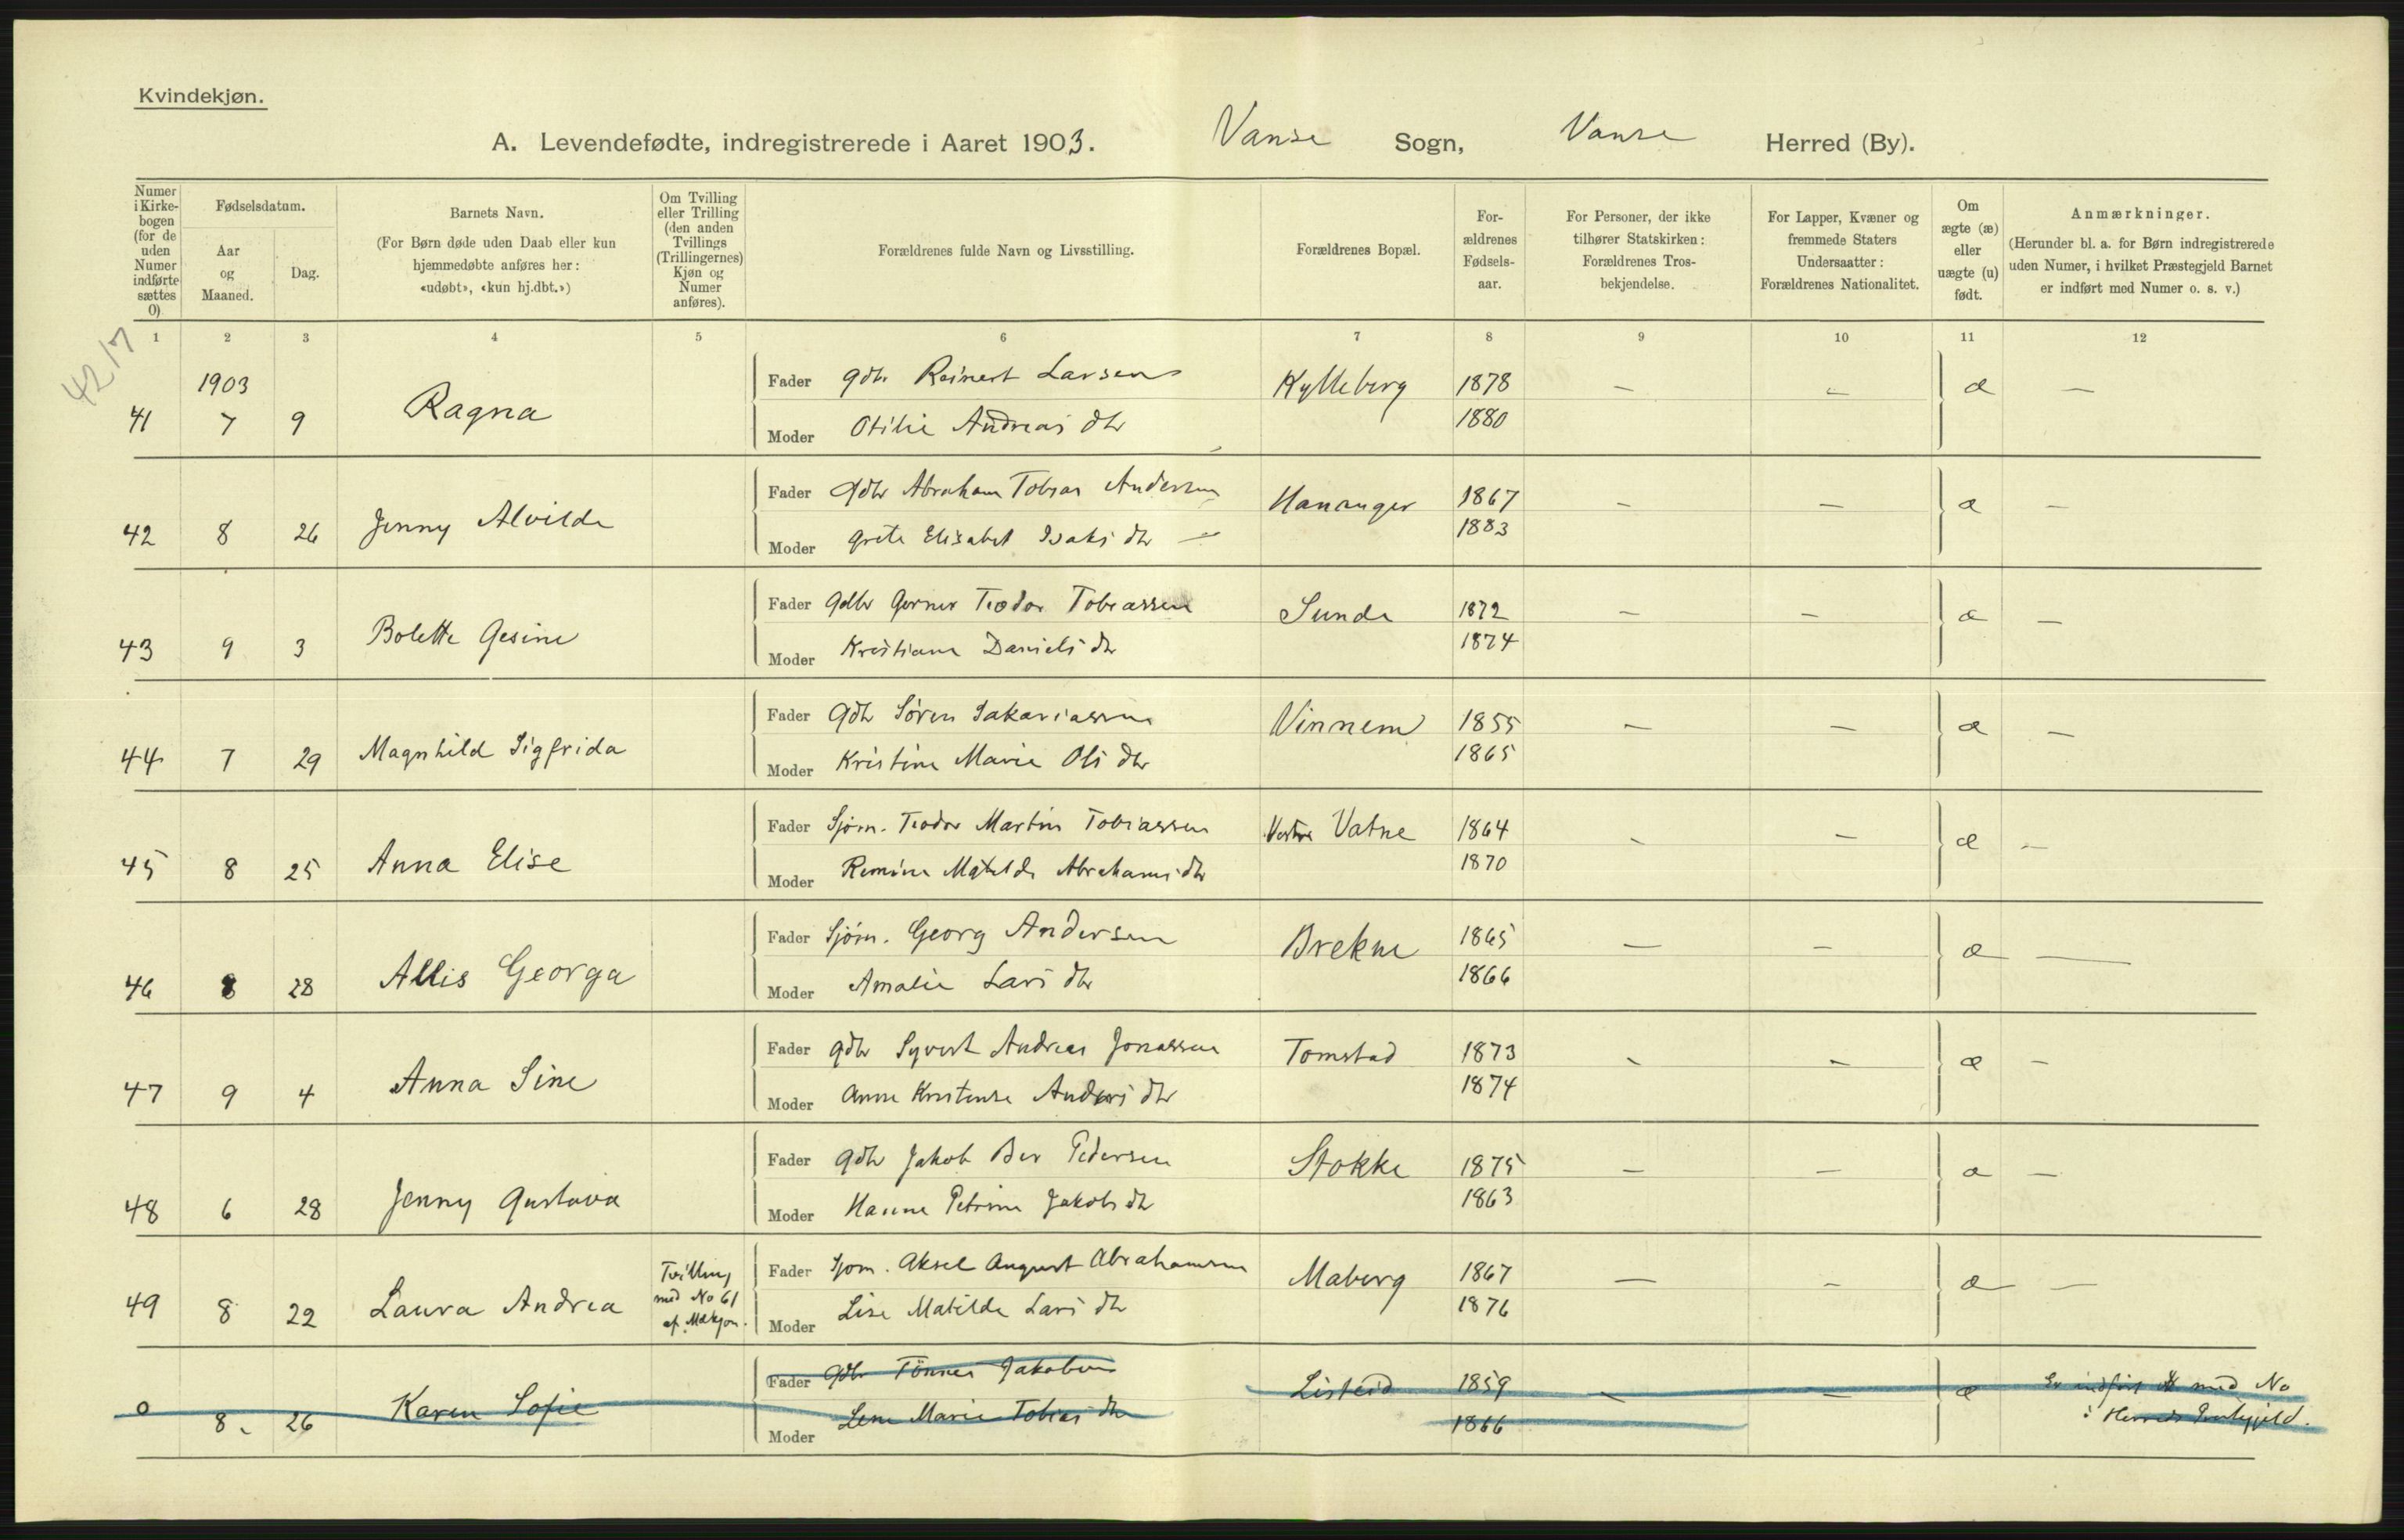 Kvindekjøn.
A. Levendefødte, indregistrerede i Aaret 1903. Vanse Sogn, Vanse Herred (By).
Numer i Kirkebogen (for de uden Numer indførte sættes 0)
Fødselsdatum.
Aar og Maaned.
Dag.
Barnets Navn.
(For Børn døde uden Daab eller kun
hjemmedøbte anføres her:
«udøbt», «kun hj.dbt.»)
Om Tvilling
eller Trilling
(den anden
Tvillings
(Trillingernes)
Kjøn og
Numer
anføres).
Forældrenes fulde Navn og Livsstilling.
Forældrenes Bopæl.
For-
ældrenes
Fødsels-
aar.
For Personer, der ikke
tilhører Statskirken:
Forældrenes Tros-
bekjendelse.
For Lapper, Kvæner og
fremmede Staters
Undersaatter:
Forældrenes Nationalitet.
Om
ægte (æ)
eller
uægte (u)
født.
Anmærkninger.
(Herunder bl. a. for Børn indregistrerede
uden Numer, i hvilket Præstegjeld Barnet
er indført med Numer o. s. v.)
1 2 3 4 5 6 7 8 9 10 11 12
4217
1903
Fader gdbr Reinert Larsen Kylleberg 1878 – – æ –
41 7 9 Ragna
Moder Otilie Andreas dtr 1880
Fader gdbr Abraham Tobias Andersen Hananger 1867 – – æ –
42 8 26 Jenny Alvilde
Moder Grete Elisabet Isaks dtr – 1883
Fader gdbr Gerner Teodor Tobiassen Sunde 1872 – – æ –
43 9 3 Bolette Gesine
Moder Kristiane Daniels dtr 1874
Fader gdbr Søren Sakariassen Vinnem 1855 – – æ –
44 7 29 Magnhild Sigfrida
Moder Kristine Marie Ols dtr 1865
Fader Sjøm. Teodor Martin Tobiassen Vestre Vatne 1864 – – æ –
45 8 25 Anna Elise
Moder Remine Matilde Abrahams dtr 1870
Fader Sjøm. Georg Andersen Brekne 1865 – – æ –
46 8 28 Allis Georga
Moder Amalie Lars dtr 1866
Fader gdbr Syvert Andreas Jonassen Tomstad 1873 – – æ –
47 9 4 Anna Sine
Moder Anne Kristense Anders dtr 1874
Fader gdbr Jakob Ber Pedersen Stokke 1875 – – æ –
48 6 28 Jenny Gustava
Moder Hanne Petrine Jakobs dtr 1863
Tvilling
med No 61
af Mdkjøn.
Fader Sjøm. Aksel August Abrahamsen Maberg 1867 – – æ –
49 8 22 Laura Andrea
Moder Lise Matilde Lars dtr 1876
Fader gdbr Tönnes Jakobsen Listeid 1859 – – æ Er indført med No
0 8 26 Karen Sofie
Moder Lene Marie Tobias dtr 1866 i Herreds